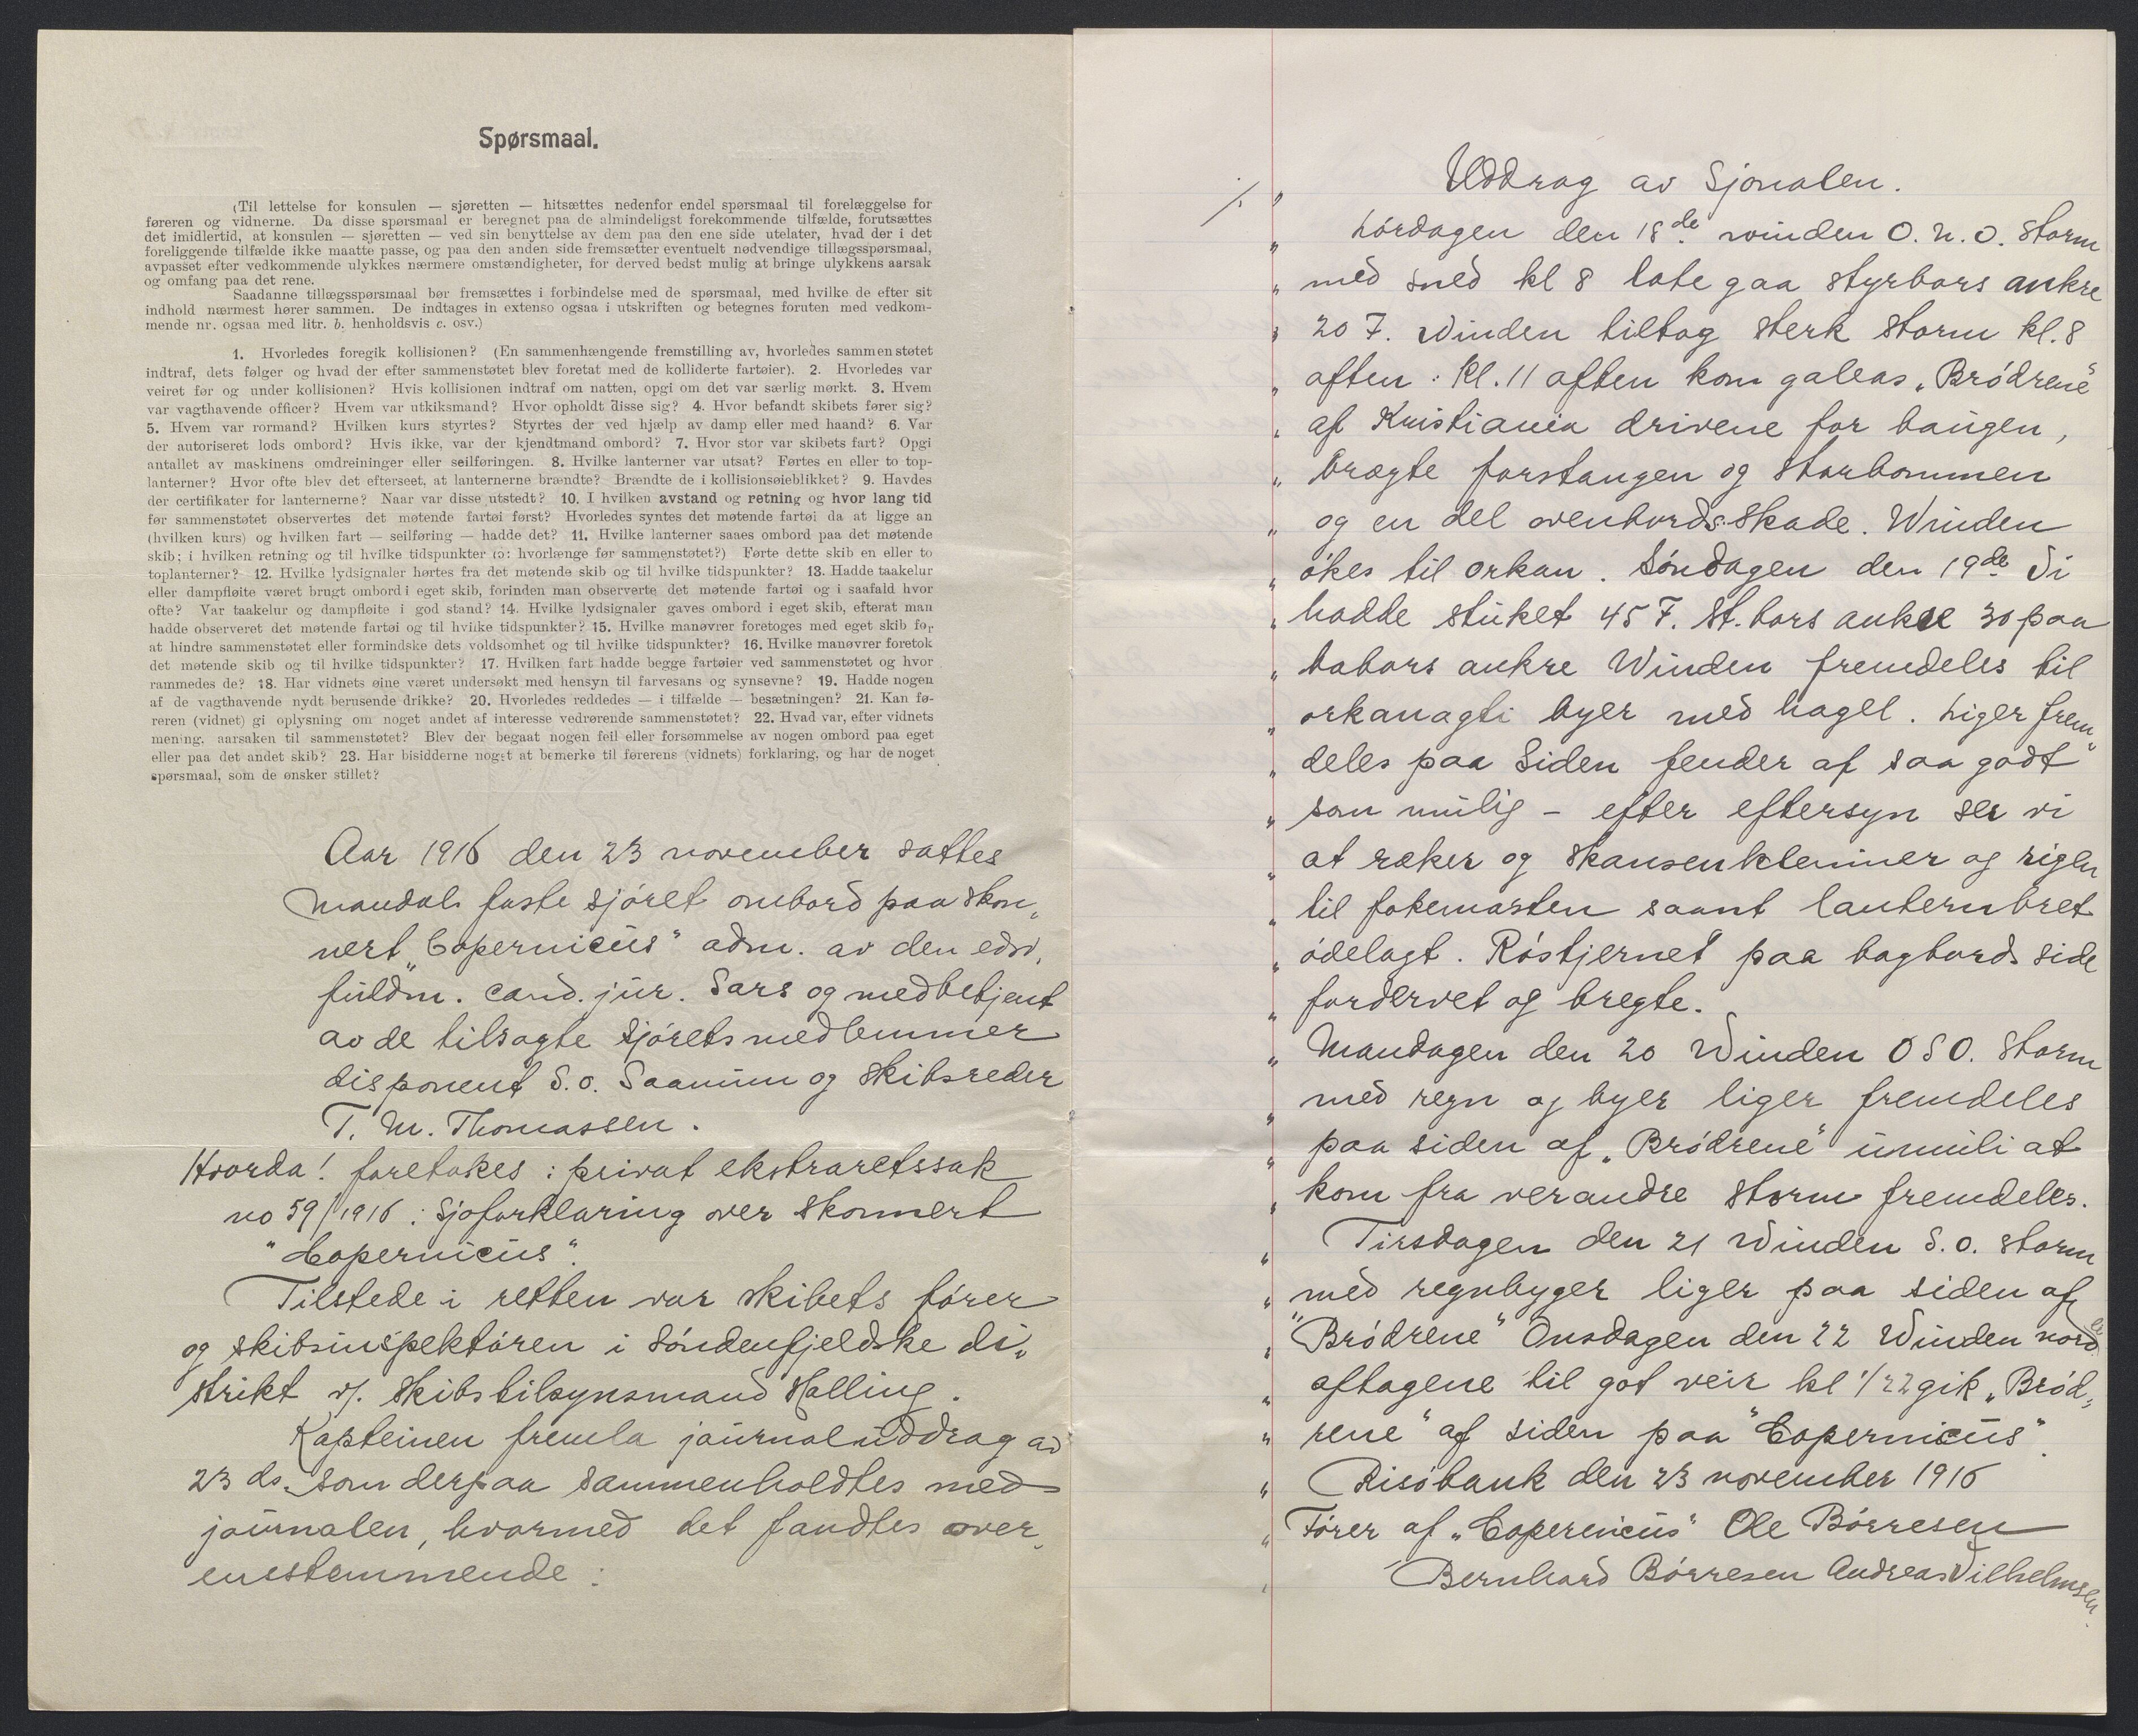 Spørsmaal.
(Til lettelse for konsulen — sjøretten — hitsættes nedenfor endel spørsmaal til forelæggelse for
føreren og vidnerne. Da disse spørsmaal er beregnet paa de almindeligst forekommende tilfælde, forutsættes
det imidlertid, at konsulen — sjøretten — ved sin benyttelse av dem paa den ene side utelater, hvad der i det
foreliggende tilfælde ikke maatte passe, og paa den anden side fremsætter eventuelt nødvendige tillægsspørsmaal,
avpasset efter vedkommende ulykkes nærmere omstændigheter, for derved bedst mulig at bringe ulykkens aarsak
og omfang paa det rene.
Saadanne tillægsspørsmaal bør fremsættes i forbindelse med de spørsmaal, med hvilke de efter sit
indhold nærmest hører sammen. De indtages in extenso ogsaa i utskriften og betegnes foruten med vedkom-
mende nr. ogsaa med litr. b. henholdsvis c. osv.)
1. Hvorledes foregik kollisionen? (En sammenhængende fremstilling av, hvorledes sammenstøtet
indtraf, dets følger og hvad der efter sammenstøtet blev foretat med de kolliderte fartøier). 2. Hvorledes var
veiret før og under kollisionen? Hvis kollisionen indtraf om natten, opgi om det var særlig mørkt. 3. Hvem
var vagthavende officer? Hvem var utkiksmand? Hvor opholdt disse sig? 4. Hvor befandt skibets fører sig?
5. Hvem var rormand? Hvilken kurs styrtes? Styrtes der ved hjælp av damp eller med haand? 6. Var
der autoriseret lods ombord? Hvis ikke, var der kjendtmand ombord? 7. Hvor stor var skibets fart? Opgi
antallet av maskinens omdreininger eller seilføringen. 8. Hvilke lanterner var utsat? Førtes en eller to top-
lanterner? Hvor ofte blev det efterseet, at lanternerne brændte? Brændte de i kollisionsøieblikket? 9. Havdes
der certifikater for lanternerne? Naar var disse utstedt? 10. I hvilken avstand og retning og hvor lang tid
før sammenstøtet observertes det møtende fartøi først? Hvorledes syntes det møtende fartøi da at ligge an
(hvilken kurs) og hvilken fart — seilføring — hadde det? 11. Hvilke lanterner saaes ombord paa det møtende
skib; i hvilken retning og til hvilke tidspunkter (ɔ: hvorlænge før sammenstøtet?) Førte dette skib en eller to
toplanterner? 12. Hvilke lydsignaler hørtes fra det møtende skib og til hvilke tidspunkter? 13. Hadde taakelur
eller dampfløite været brugt ombord i eget skib, forinden man observerte det møtende fartøi og i saafald hvor
ofte? Var taakelur og dampfløite i god stand? 14. Hvilke lydsignaler gaves ombord i eget skib, efterat man
hadde observeret det møtende fartøi og til hvilke tidspunkter? 15. Hvilke manøvrer foretoges med eget skib for
at hindre sammenstøtet eller formindske dets voldsomhet og til hvilke tidspunkter? 16. Hvilke manøvrer foretok
det møtende skib og til hvilke tidspunkter? 17. Hvilken fart hadde begge fartøier ved sammenstøtet og hvor
rammedes de? 18. Har vidnets øine været undersøkt med hensyn til farvesans og synsevne? 19. Hadde nogen
af de vagthavende nydt berusende drikke? 20. Hvorledes reddedes — i tilfælde — besætningen? 21. Kan fø-
reren (vidnet) gi oplysning om noget andet af interesse vedrørende sammenstøtet? 22. Hvad var, efter vidnets
mening, aarsaken til sammenstøtet? Blev der begaat nogen feil eller forsømmelse av nogen ombord paa eget
eller paa det andet skib? 23. Har bisidderne noget at bemerke til førerens (vidnets) forklaring, og har de noget
spørsmaal, som de ønsker stillet?
Aar 1916 den 23 november sattes
Mandals faste sjøret ombord paa skon„
nert „Copernicus" adm. av den edsv.
fuldm. cand. jur. Sars og medbetjent
av de tilsagte sjøretsmedlemmer
disponent S. O. Saanum og skibsreder
T. M. Thomassen.
Hvorda! foretokes: privat ekstraretssak
no 59/1916: Sjøforklaring over skonnert
"Copernicus".
Tilstede i retten var skibets fører
og skibsinspektøren i Søndenfjeldske di„
strikt v/. skibstilsynsmand Halling.
Kapteinen fremla journaluddrag av
23 ds. som derpaa sammenholdtes med
journalen, hvormed det fandtes over„
enstemmende:
·/. „ Uddrag av Sjonalen.
„ Lørdagen den 18de winden O. N. O. Storm
„ med sned kl 8 lote gaa styrbors ankre
„ 20 F. Winden tiltog sterk storm kl. 8
„ aften: Kl. 11 aften kom galeas „Brødrene"
„ af Kristiania drivene for baugen,
„ bragte forstangen og storbommen
„ og en del ovenbords skade. Winden
„ økes til orkan. Søndagen den 19de Vi
„ hadde stuket 45 F. St. bors ankre 30 paa
„ babors ankre Winden fremdeles til
„ orkanagti byer med hagel. Liger frem„
„ deles paa Siden fender af saa godt
„ som mulig – efter eftersyn ser vi
„ at røker og skansenklemmer og rigen
„ til fokemasten samt lanternbret
„ ødelagt. Røstjernet paa bagbords side
„ fordervet og bregte.
„ Mandagen den 20 Winden O S O. Storm
„ med regn og byer liger fremdeles
„ paa siden af „Brødrene" umuli at
„ kom fra verandre storm fremdeles.
„ Tirsdagen den 21 Winden S. O. storm
„ med regnbyger liger paa siden af
„ "Brødrene" Onsdagen den 22 Winden nord
„ aftagene til got veir kl 1/22 gik „Brød„
„ rene" af siden paa "Copernicus".
„ Risøbank den 23 november 1916
„ Fører af „Copernicus" Ole Børresen
„ Bernhard Børresen Andreas Vilhelmsen.